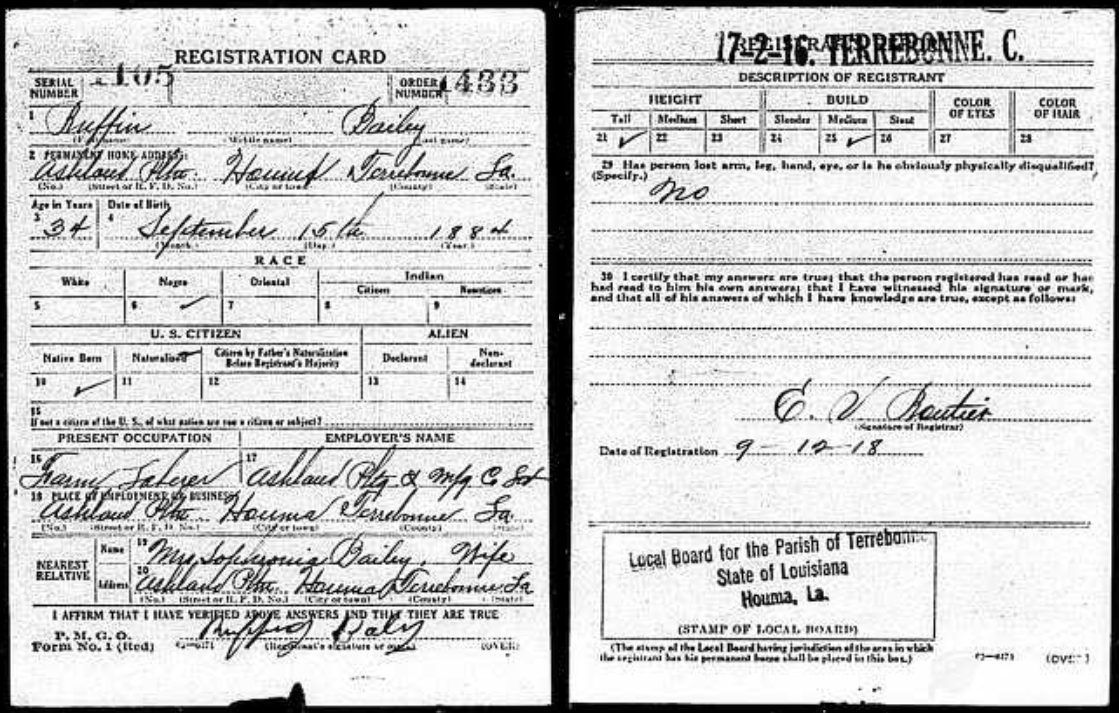 REGISTRATION CARD
SERIAL NUMBER 105 ORDER NUMBER 1433
1 Ruffin Bailey
(First name) (Middle name) (Last name)
2 PERMANENT HOME ADDRESS:
Ashland Plta. Houma Terrebonne La.
(No.) (Street or R. F. D. No.) (City or town) (County) (State)
Age in Years Date of Birth
3 34 4 September 15th 1884
(Month.) (Day.) (Year.)
RACE
White Negro Oriental Indian
Citizen Noncitizen
5 6 ✓ 7 8 9
U. S. CITIZEN ALIEN
Native Born Naturalized Citizen by Father's Naturalization Before Registrant's Majority Declarant Non-declarant
10 ✓ 11 12 13 14
15
If not a citizen of the U. S., of what nation are you a citizen or subject?
PRESENT OCCUPATION EMPLOYER'S NAME
16 Farm Laborer 17 Ashland Pltg & Mfg Co Ltd
18 PLACE OF EMPLOYMENT OR BUSINESS:
Ashland Plta. Houma Terrebonne La.
(No.) (Street or R. F. D. No.) (City or town) (County) (State)
NEAREST RELATIVE
Name 19 Mrs. Sophronia Bailey, Wife
Address 20 Ashland Plta. Houma Terrebonne La
(No.) (Street or R. F. D. No.) (City or town) (County) (State)
I AFFIRM THAT I HAVE VERIFIED ABOVE ANSWERS AND THAT THEY ARE TRUE
P. M. G. O.
Form No. 1 (Red) (Registrant's signature or mark) (OVER)
REGISTRAR'S REPORT
17-2-16. TERREBONNE. C.
DESCRIPTION OF REGISTRANT
HEIGHT BUILD COLOR OF EYES COLOR OF HAIR
Tall Medium Short Slender Medium Stout
21 ✓ 22 23 24 25 ✓ 26 27 28
29 Has person lost arm, leg, hand, eye, or is he obviously physically disqualified?
(Specify.)
No
30 I certify that my answers are true; that the person registered has read or has
had read to him his own answers; that I have witnessed his signature or mark,
and that all of his answers of which I have knowledge are true, except as follows:
E. V.
(Signature of Registrar)
Date of Registration 9-12-18
Local Board for the Parish of Terrebonne
State of Louisiana
Houma, La.
(STAMP OF LOCAL BOARD)
(The stamp of the Local Board having jurisdiction of the area in which
the registrant has his permanent home shall be placed in this box.)
(OVER)